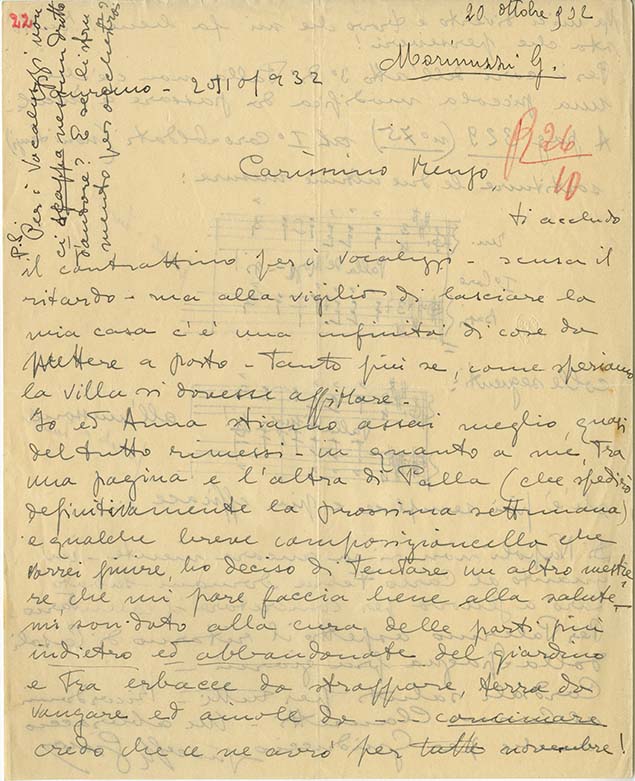 22
20 ottobre 932
Marinuzzi G.
20/10/932
R 26
10
Carissimo
ti accludo
il contrattino per i Vocalizzi - scusa il
ritardo - ma alla vigilia di lasciare la
mia casa c'è una infinità di cose da
mettere a posto - tanto più se, come speriamo
la villa si dovesse affittare.
Io ed Anna stiamo assai meglio, quasi
del tutto rimessi - in quanto a me, tra
una pagina e l'altra di Palla (che spedirò
definitivamente la prossima settimana)
e qualche breve composizioncella che
vorrei finire, ho deciso di tentare un altro mestie-
re che mi pare faccia bene alla salute -
mi son dato alla cura delle parti più
indietro ed abbandonate del giardino
e tra erbacce da strappare, terra da
vangare ed aiuole da - - - concimare
credo che ce ne avrò per tutto novembre!
P.S.
Per i Vocalizzi non
ci scappa nessun diritto
d'autore? E se li stru-
mento per orchestra?